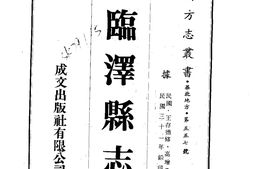 方志叢書・華北地方・第五五七號
據民國・王存德修・高增
民國三十一年鉛印
臨澤縣志
成文出版社有限公